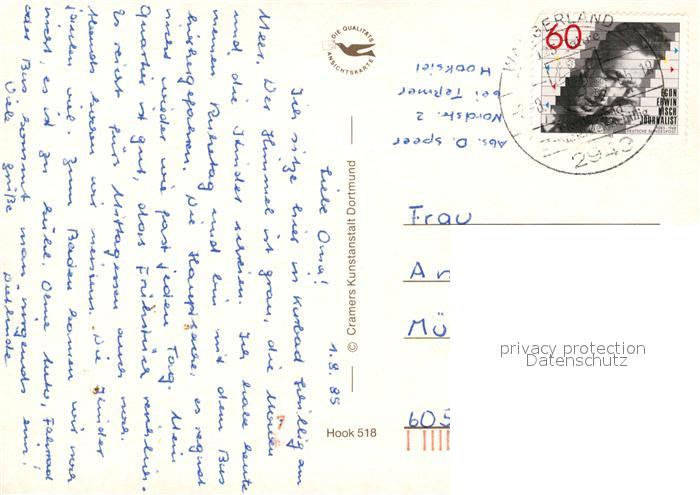 1.8.85
Liebe Oma!
Ich sitze hier in Kurbad Schillig am
Meer. Der Himmel ist grau, die Möwen
und die Kinder schreien. Ich habe heute
meinen Ruhetag und bin mit dem Bus
hierhergefahren. Die Hauptsache, es regnet
nicht wieder wie fast jeden Tag. Mein
Quartier ist gut, das Frühstück reichlich.
Es reicht fürs Mittagessen auch noch.
Abends kochen wir meistens. Die Kinder
viel. Zum Baden kamen wir noch
nicht, es ist zu kühl. Ohne Auto, Fahrrad
oder Bus kommt man nirgends hin!
Viele Grüße
Dietlinde
DIE QUALITÄTS
ANSICHTSKARTE
© Cramers Kunstanstalt Dortmund
Hook 518
Abs. D. Speer
Nordstr. 2
bei Teßmer
Hooksiel
WANGERLAND
2943
60
EGON
ERWIN
KISCH
JOURNALIST
DEUTSCHE BUNDESPOST
Frau
An
Mü
605
privacy protection
Datenschutz